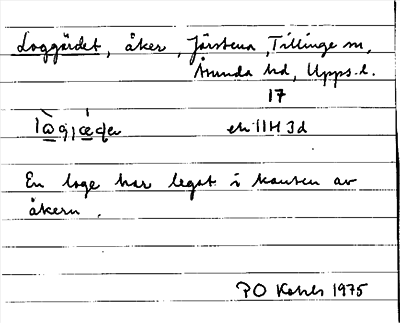 Loggärdet, åker, Järstena, Tillinge sn,
Åsunda hd, Upps. l.
17
ek 11H 3d
En loge har legat i kanten av
åkern.
PO 1975